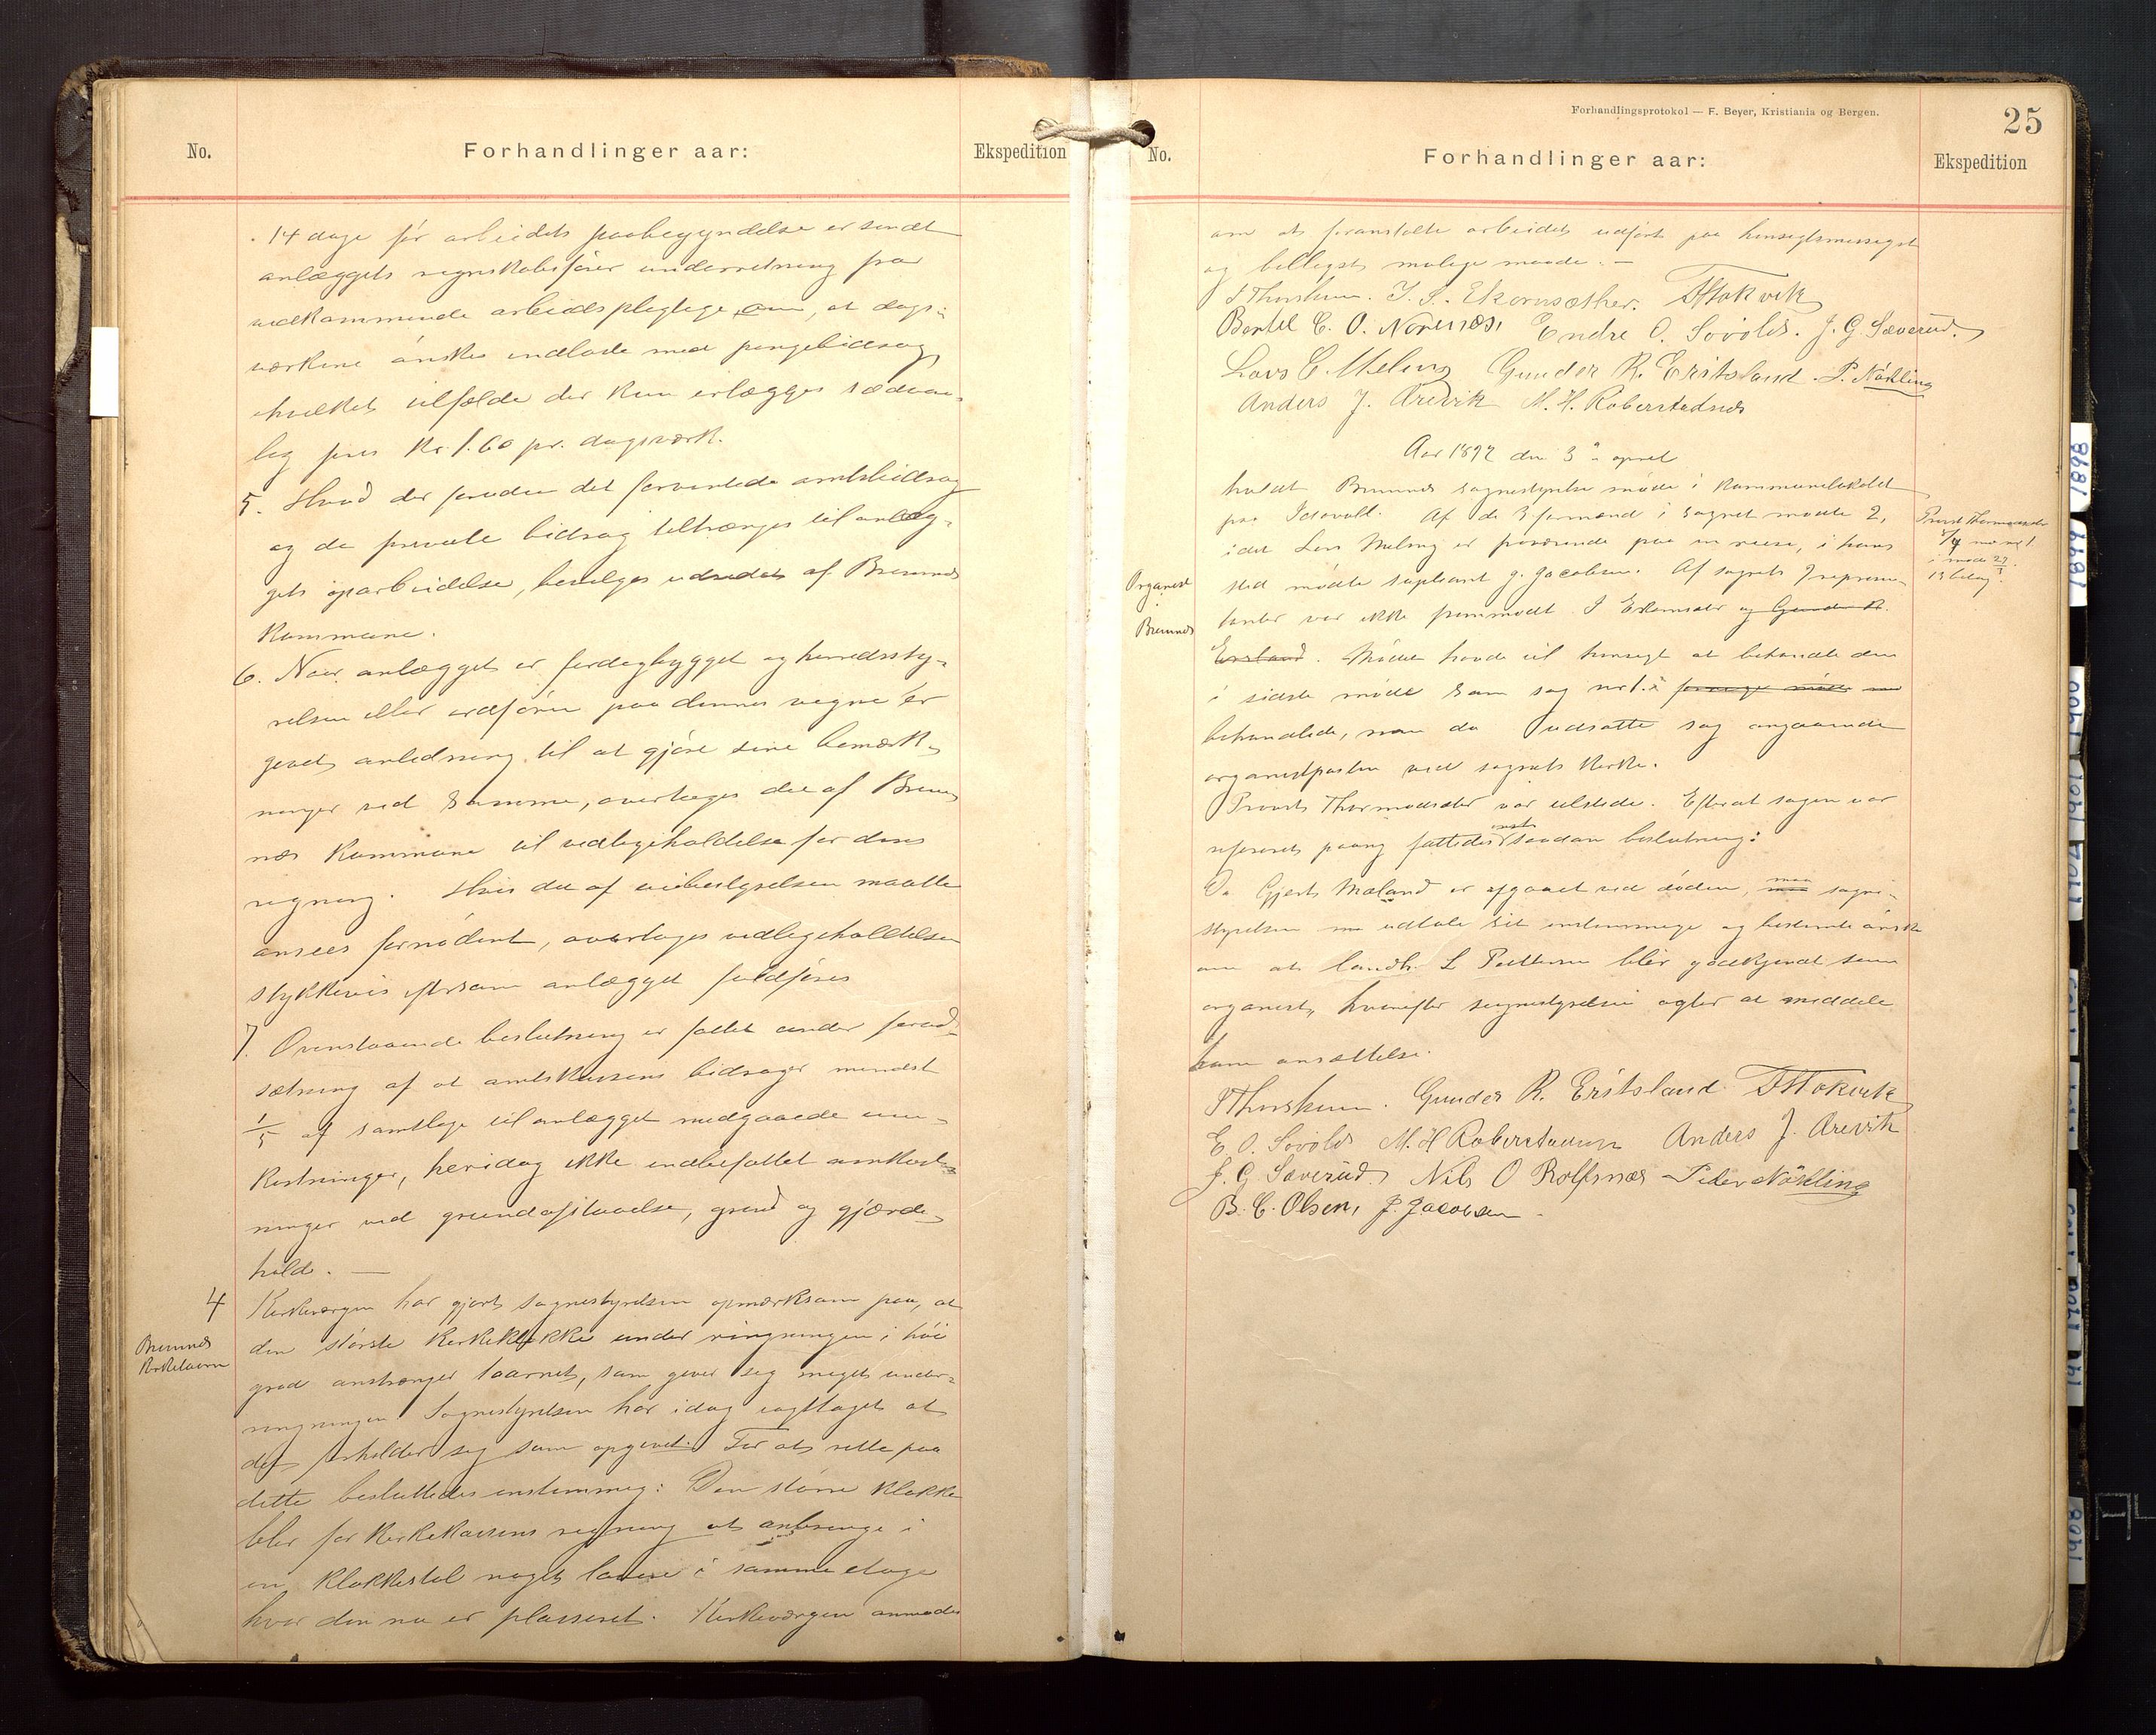 No.
Forhandlinger aar:
Ekspedition
14 dage før arbeidets paabegyndelse er sendt
anlæggets regnskabsfører underretning fra
vedkommende arbeidspligtige om, at dags-
værkene ønskes indløste med pengebidrag
hvilket tilfælde der kun erlægges sædvan-
lig pris Kr. 1.60 pr. dagsværk.
5. Hvad der foruden det forventede amtsbidrag
og de private bidrag tiltrænges til anlæg-
gets oparbeidelse, bevilges udredet af Bremnes
Kommune.
6. Naar anlægget er færdigbygget og herredssty-
relsen eller ordfører paa dennes vegne er
givet anledning til at gjøre sine bemærk-
ninger ved samme, overtages det af Brem-
nes Kommune til vedligeholdelse for dens
regning. Hvis det af veibestyrelsen maatte
ansees fornødent, overtages vedligeholdelsen
stykkevis eftersom anlægget fuldføres
7. Ovenstaaende beslutning er fattet under forud-
sætning af at amtskassens bidrager mindst
1/5 af samtlige til anlægget medgaaede om-
kostninger, heridag ikke indbefattet omkost-
ninger ved grundafstaaelse, grind og gjærde-
hold. —
4
Bremnes
Kirketaarn
Kirkeværgen har gjort sognestyrelsen opmærksom paa, at
den største Kirkeklokke under ringningen i høi
grad anstrænger taarnet, som giver sig meget under
ringningen. Sognestyrelsen har idag iagttaget at
det forholder sig som opgivet. For at rette paa
dette besluttedes enstemmig: Den større Klokke
blir for Kirkekassens regning at anbringe i
en Klokkestol noget lavere i samme etage
hvor den nu er plasseret. Kirkeværgen anmodes
Forhandlingsprotokol — F. Beyer, Kristiania og Bergen.
25
No.
Forhandlinger aar:
Ekspedition
om at foranstalte arbeidet udført paa hensigtsmessigst
og billigst mulige maade. —
J. S. Ekornsæther. Stokvik
Bertel C. O. Norenæs, Endre O. Sovold. J. G. Sæverud.
Lars C. Meling Gunder R. Eritsland. P. Nökling
Anders J. Arevik M. H. Roberstadnes
Aar 1897 den 3die april
holdt Bremnes sognestyrelse møde i Kommunelokalet
paa Idsevoll. Af de 3 formænd i sognet mødte 2,
idet Lars Meling er fraværende paa en reise, i hans
sted mødte supleant J. Jacobsen. Af sognets 9 repræsen-
tanter var ikke fremmødt J Ekornsæter og Gunder R.
Ersland. Mødet havde til hensigt at behandle den
i sidste møde som sag nr 1. i forrige møde
behandlede, men da udsatte sag angaaende
organistposten ved sognets Kirke.
Organist
i
Bremnes
Provst Thormodsæter
i møde
13 bilag.
Provst Thormodsæter var tilstede. Efterat sagen var
refereret paany fattedes saadan beslutning:
Da Gjert Mæland er afgaaet ved døden, maa sogne-
styrelsen udtale sit enstemmige og bestemte ønske
om at landh. L Pettersen blir godkjendt som
organist, hvorefter sognestyrelsen agter at meddele
ham ansættelse.
Gunder R. Eritsland Stokvik
E. O. Sovold M. H Roberstadnes Anders J. Arevik
J. G Sæverud. Nils O Rolfsnæs Peder Nökling
B. C. Olsen, J. Jacobsen
1898
1899
1900
1901
1902
1908